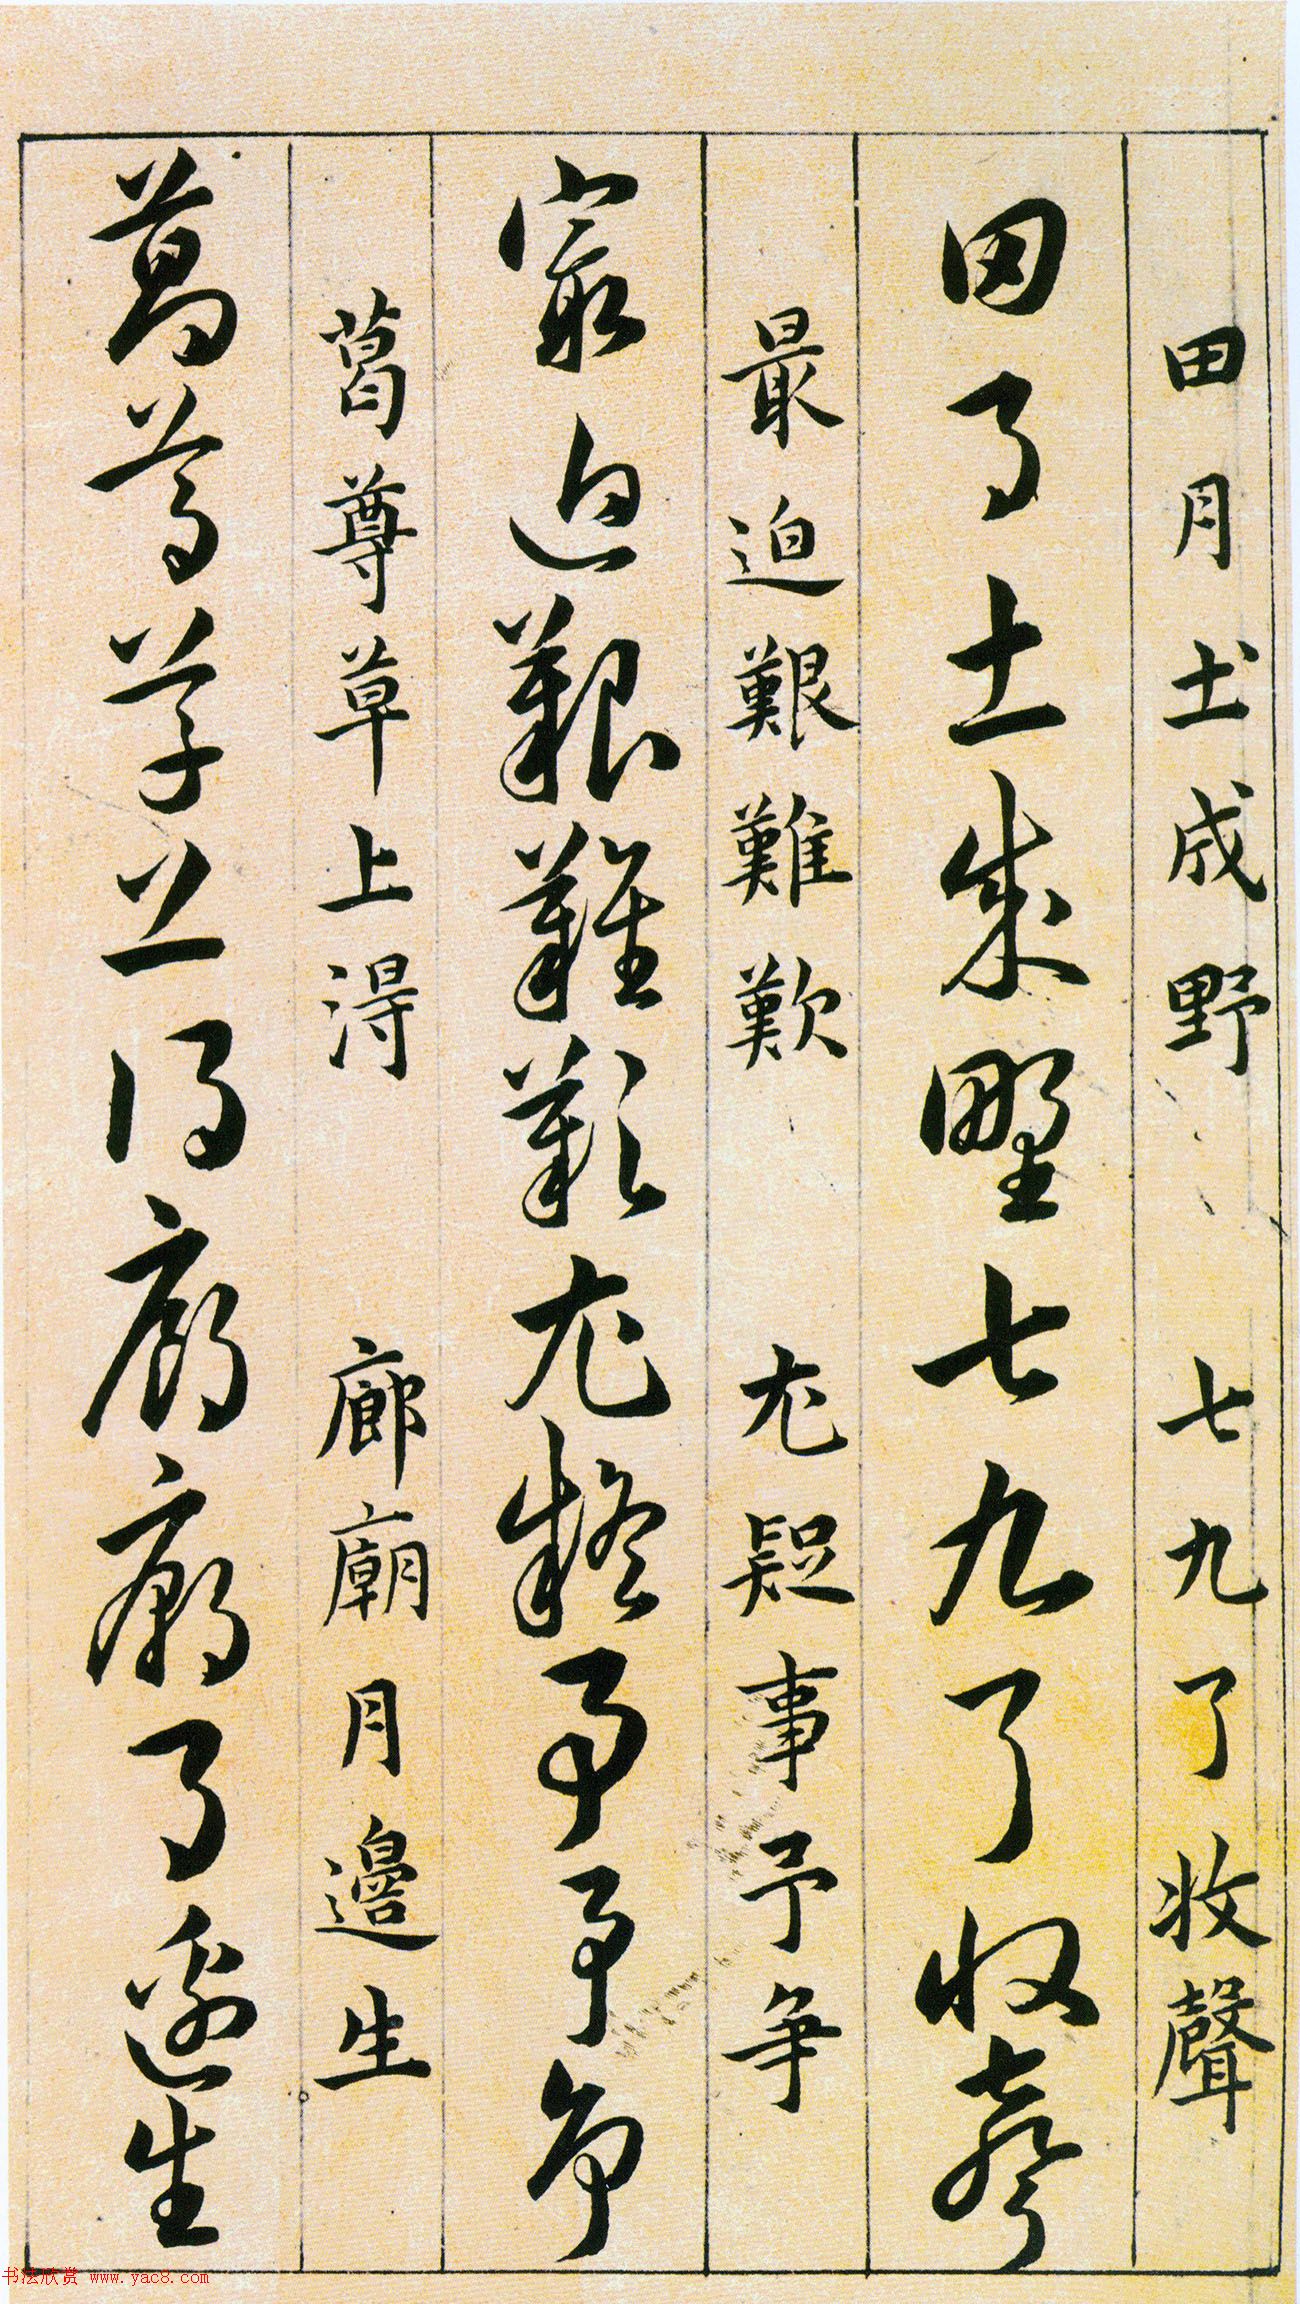 田月土成野 七九了收聲
田月土成野七九了收聲
最迫艱難歎 尤疑事予爭
最迫艱難歎尤疑事予爭
葛尊草上得 廊廟月邊生
葛尊草上得廊廟月邊生
书法欣赏 www.yac8.com